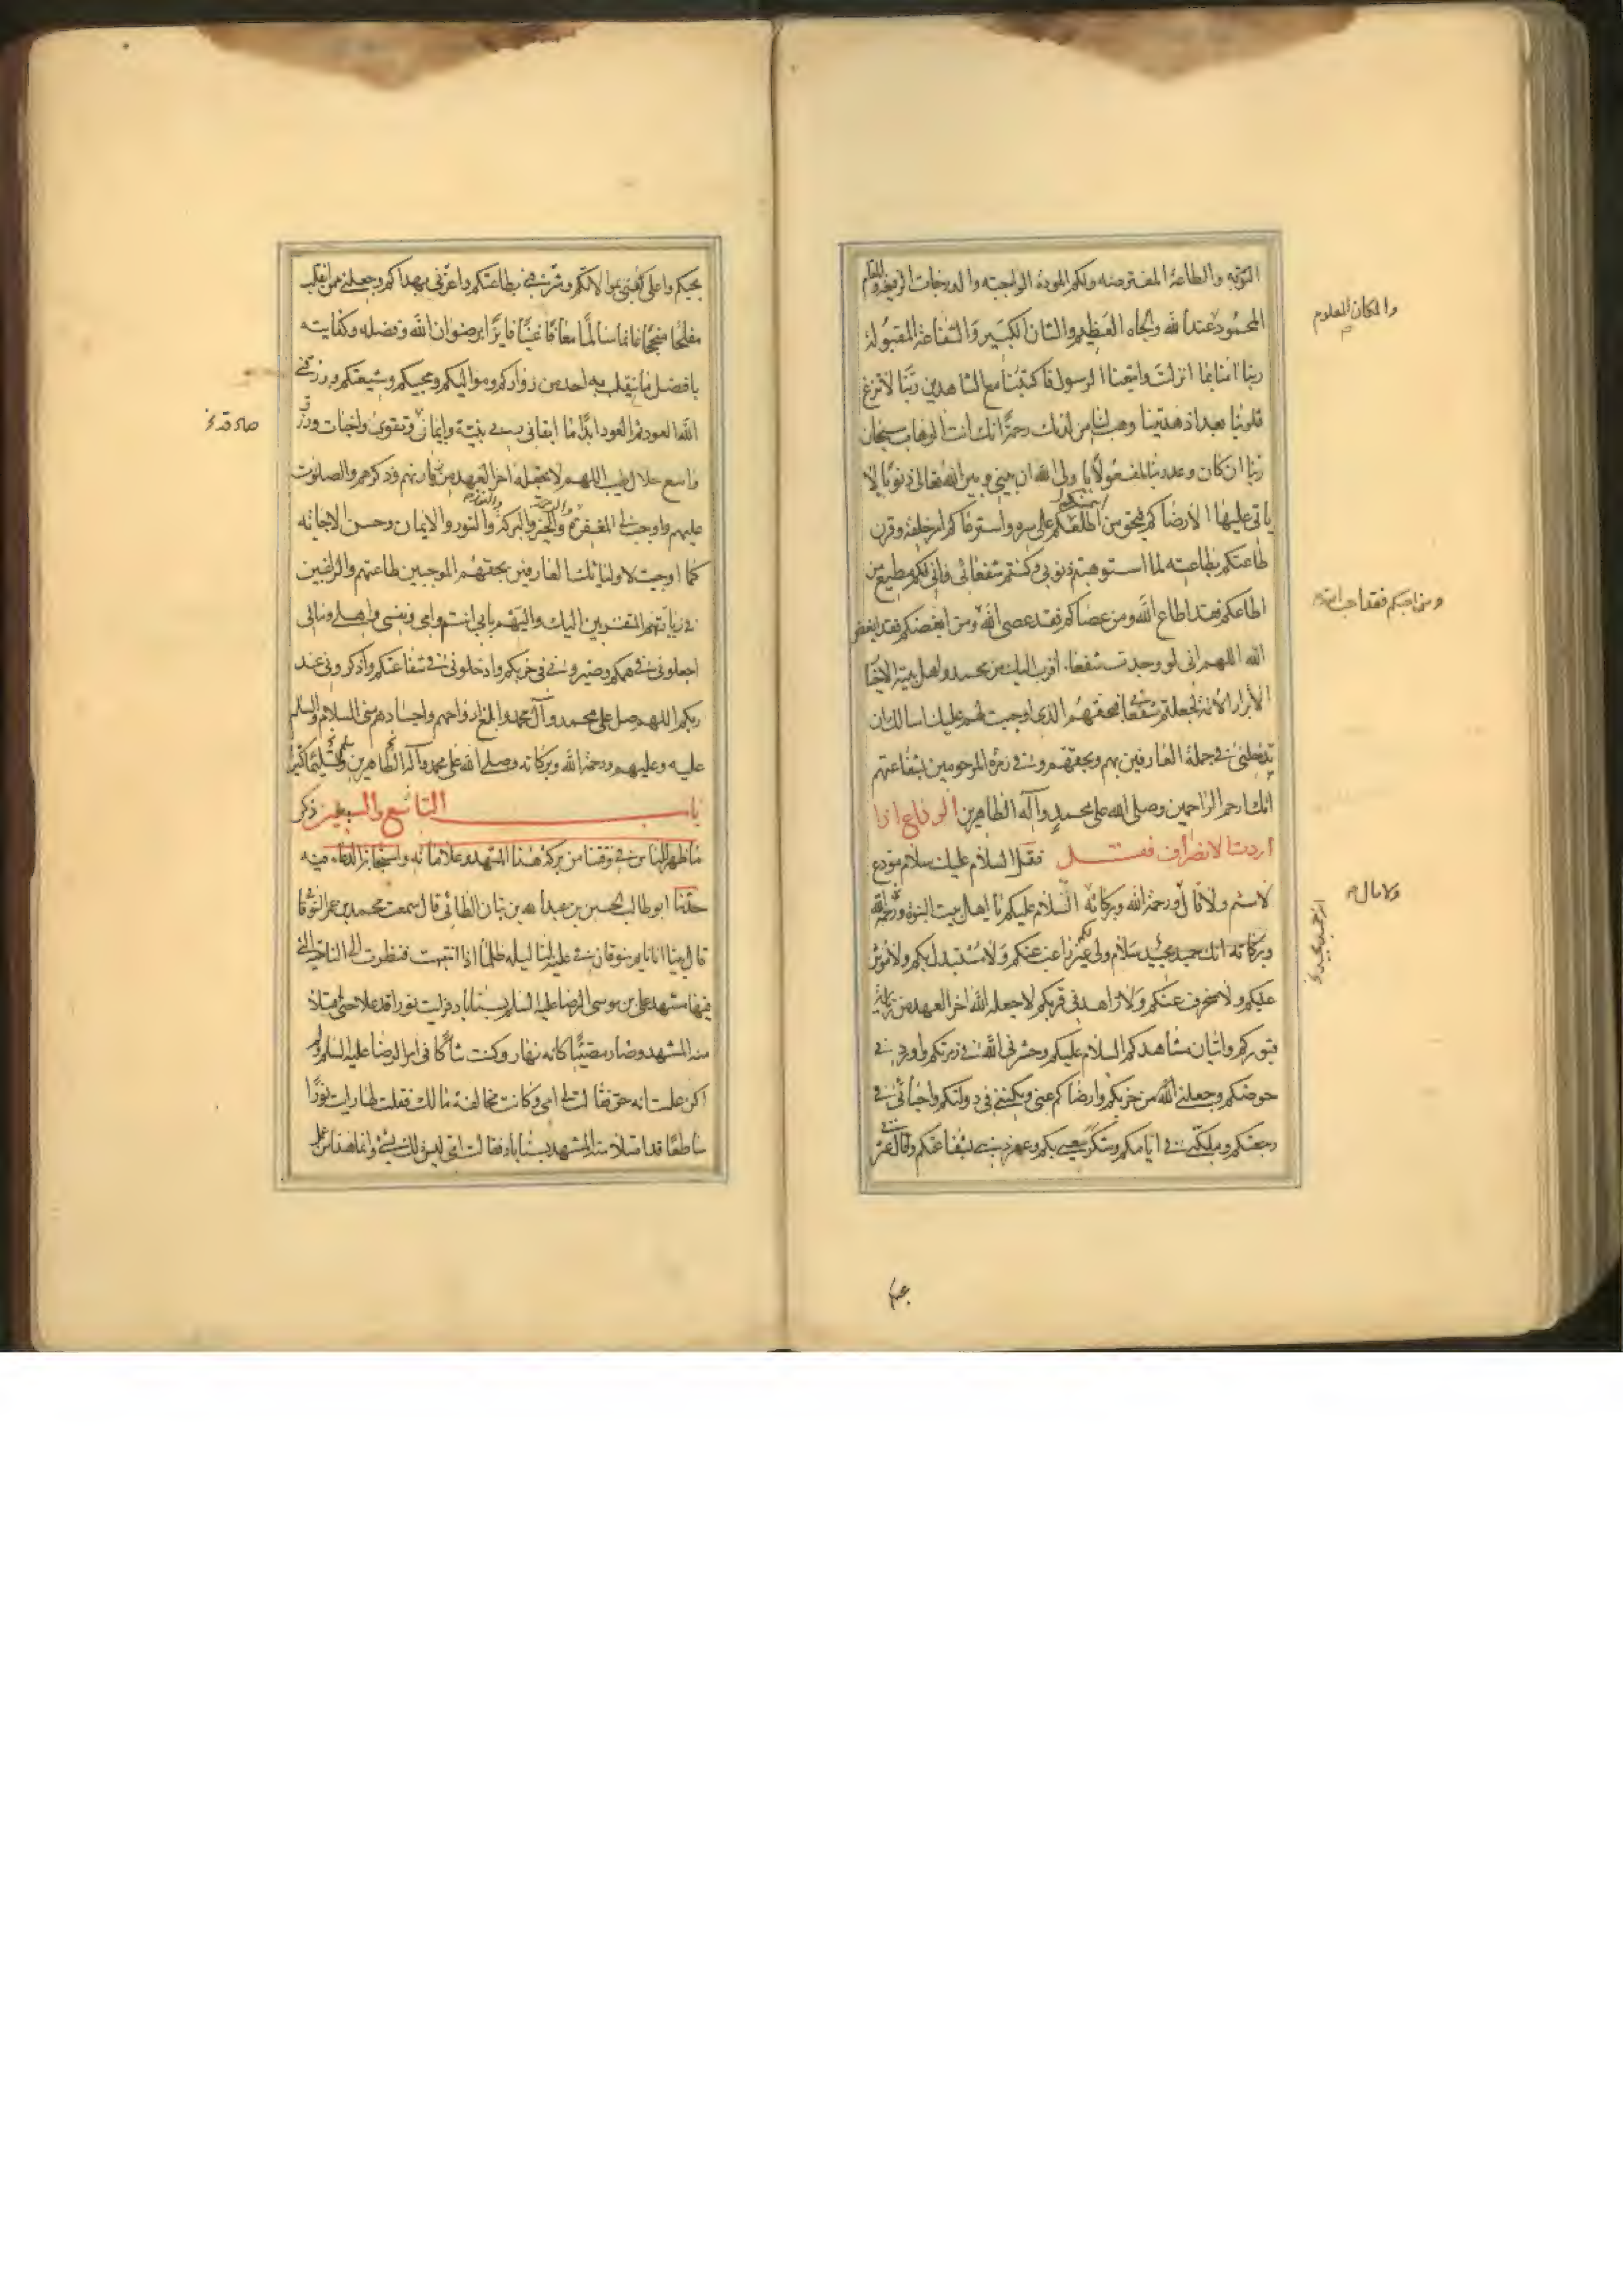 التوبه والطاعة المفترضه ولكم المودة الواجبته والدرجات الرفيعه والمقام
المحمود عند الله والجاه العظيم والشان الكبير والشفاعة المقبولة
ربنا امنا بما انزلت واتبعنا الرسول فاكتبنا مع الشاهدين ربنا لا تزغ
قلوبنا بعد اذ هديتنا وهب لنا من لدنك رحمة انك انت الوهاب سبحان
ربنا ان كان وعد ربنا لمفعولا يا ولى الله ان بينى وبين الله تعالى ذنوبا لا
ياتى عليها الا رضاكم فبحق من ائتمنكم على سره واسترعاكم امر خلقه وقرن
طاعتكم بطاعته لما استوهبتم ذنوبى وكنتم شفعائى فانى لكم مطيع من
اطاعكم فقد اطاع الله ومن عصاكم فقد عصى الله ومن ابغضكم فقد ابغض
الله اللهم انى لو وجدت شفعا اقرب اليك من محمد واهل بيته الاخيار
الابرار الائمة لجعلتهم شفعائى فبحقهم الذى اوجبت لهم عليك اسالك ان
تدخلنى فى جملة العارفين بهم وبحقهم وفى زمرة المرحومين بشفاعتهم
انك ارحم الراحمين وصلى الله على محمد وآله الطاهرين الوداع اذا
اردت الانصراف فقل فقل السلام عليك سلام مودع
لا سئم ولا قال ورحمة الله وبركاته السلام عليكم يا اهل بيت النبوة ورحمة الله
وبركاته انك حميد مجيد سلام ولى لكم غير راغب عنكم ولا مستبدل بكم ولا موثر
عليكم ولا منحرف عنكم ولا زاهد فى قربكم لا جعله الله اخر العهد من زيارة
قبوركم واتيان مشاهدكم السلام عليكم وحشرنى الله فى زمرتكم واوردنى
حوضكم وجعلنى الله من حزبكم وارضاكم عنى ومكننى فى دولتكم واحيانى فى
رجعتكم وملكنى فى ايامكم وشكر سعيى بكم وغفر ذنبى بشفاعتكم واقال عثرتى
والمكان المعلوم
ومن احبكم فقد احب الله
ولا مال
بحبكم واعلى كعبى بموالاتكم وشرفنى بطاعتكم واعزنى بهداكم وجعلنى ممن انقلب
مفلحا منجحا غانما سالما معافا غنيا فايزا برضوان الله وفضله وكفايته
بافضل ما ينقلب به احد من زواركم ومواليكم ومحبيكم وشيعتكم ورزقنى
الله العود ثم العود ابدا ما ابقانى ربى بنية وايمان وتقوى واخبات ورزق
واسع حلال طيب اللهم لا تجعله اخر العهد من زيارتهم وذكرهم والصلوت
عليهم واوجب لى المغفرة والرحمة والخير والبركة والنور والايمان وحسن الاجابة
كما اوجبت لاوليائك العارفين بحقهم الموجبين طاعتهم والراغبين
فى زيارتهم المتقربين اليك واليهم بابى انتم وامى ونفسى واهلى ومالى
اجعلونى فى همكم وصيرونى فى حزبكم وادخلونى فى شفاعتكم واذكرونى عند
ربكم اللهم صل على محمد وآل محمد وابلغ ارواحهم واجسادهم منى السلام والسلم
عليه وعليهم ورحمة الله وبركاته وصلى الله على محمد وآله الطاهرين وسلم تسليما كثيرا
باب التاسع والسبعين ذكر
ما ظهر للناس فى وقتنا من بركة هذا المشهد وعلاماته واستجابة الدعاء فيه
حدثنا ابو طالب الحسين بن عبد الله بن بنان الطائى قال سمعت محمد بن عمر النوقانى
قال بينا انا نايم بنوقان فى علية لنا ليلة ظلما اذا انتبهت فنظرت الى الناحية التى
فيها مشهد على بن موسى الرضا عليه السلم بسناباد فرايت نورا قد علا حتى امتلا
منه المشهد وصار مضيئا كانه نهار وكنت شاكا فى امر الرضا عليه السلم ولم
اكن علمت انه حق فقالت لى امى وكانت مخالفة مالك فقلت لها رايت نورا
ساطعا قد امتلا منه المشهد بسناباد فقالت امى ليس ذلك بشئ وانما هذا من عمل